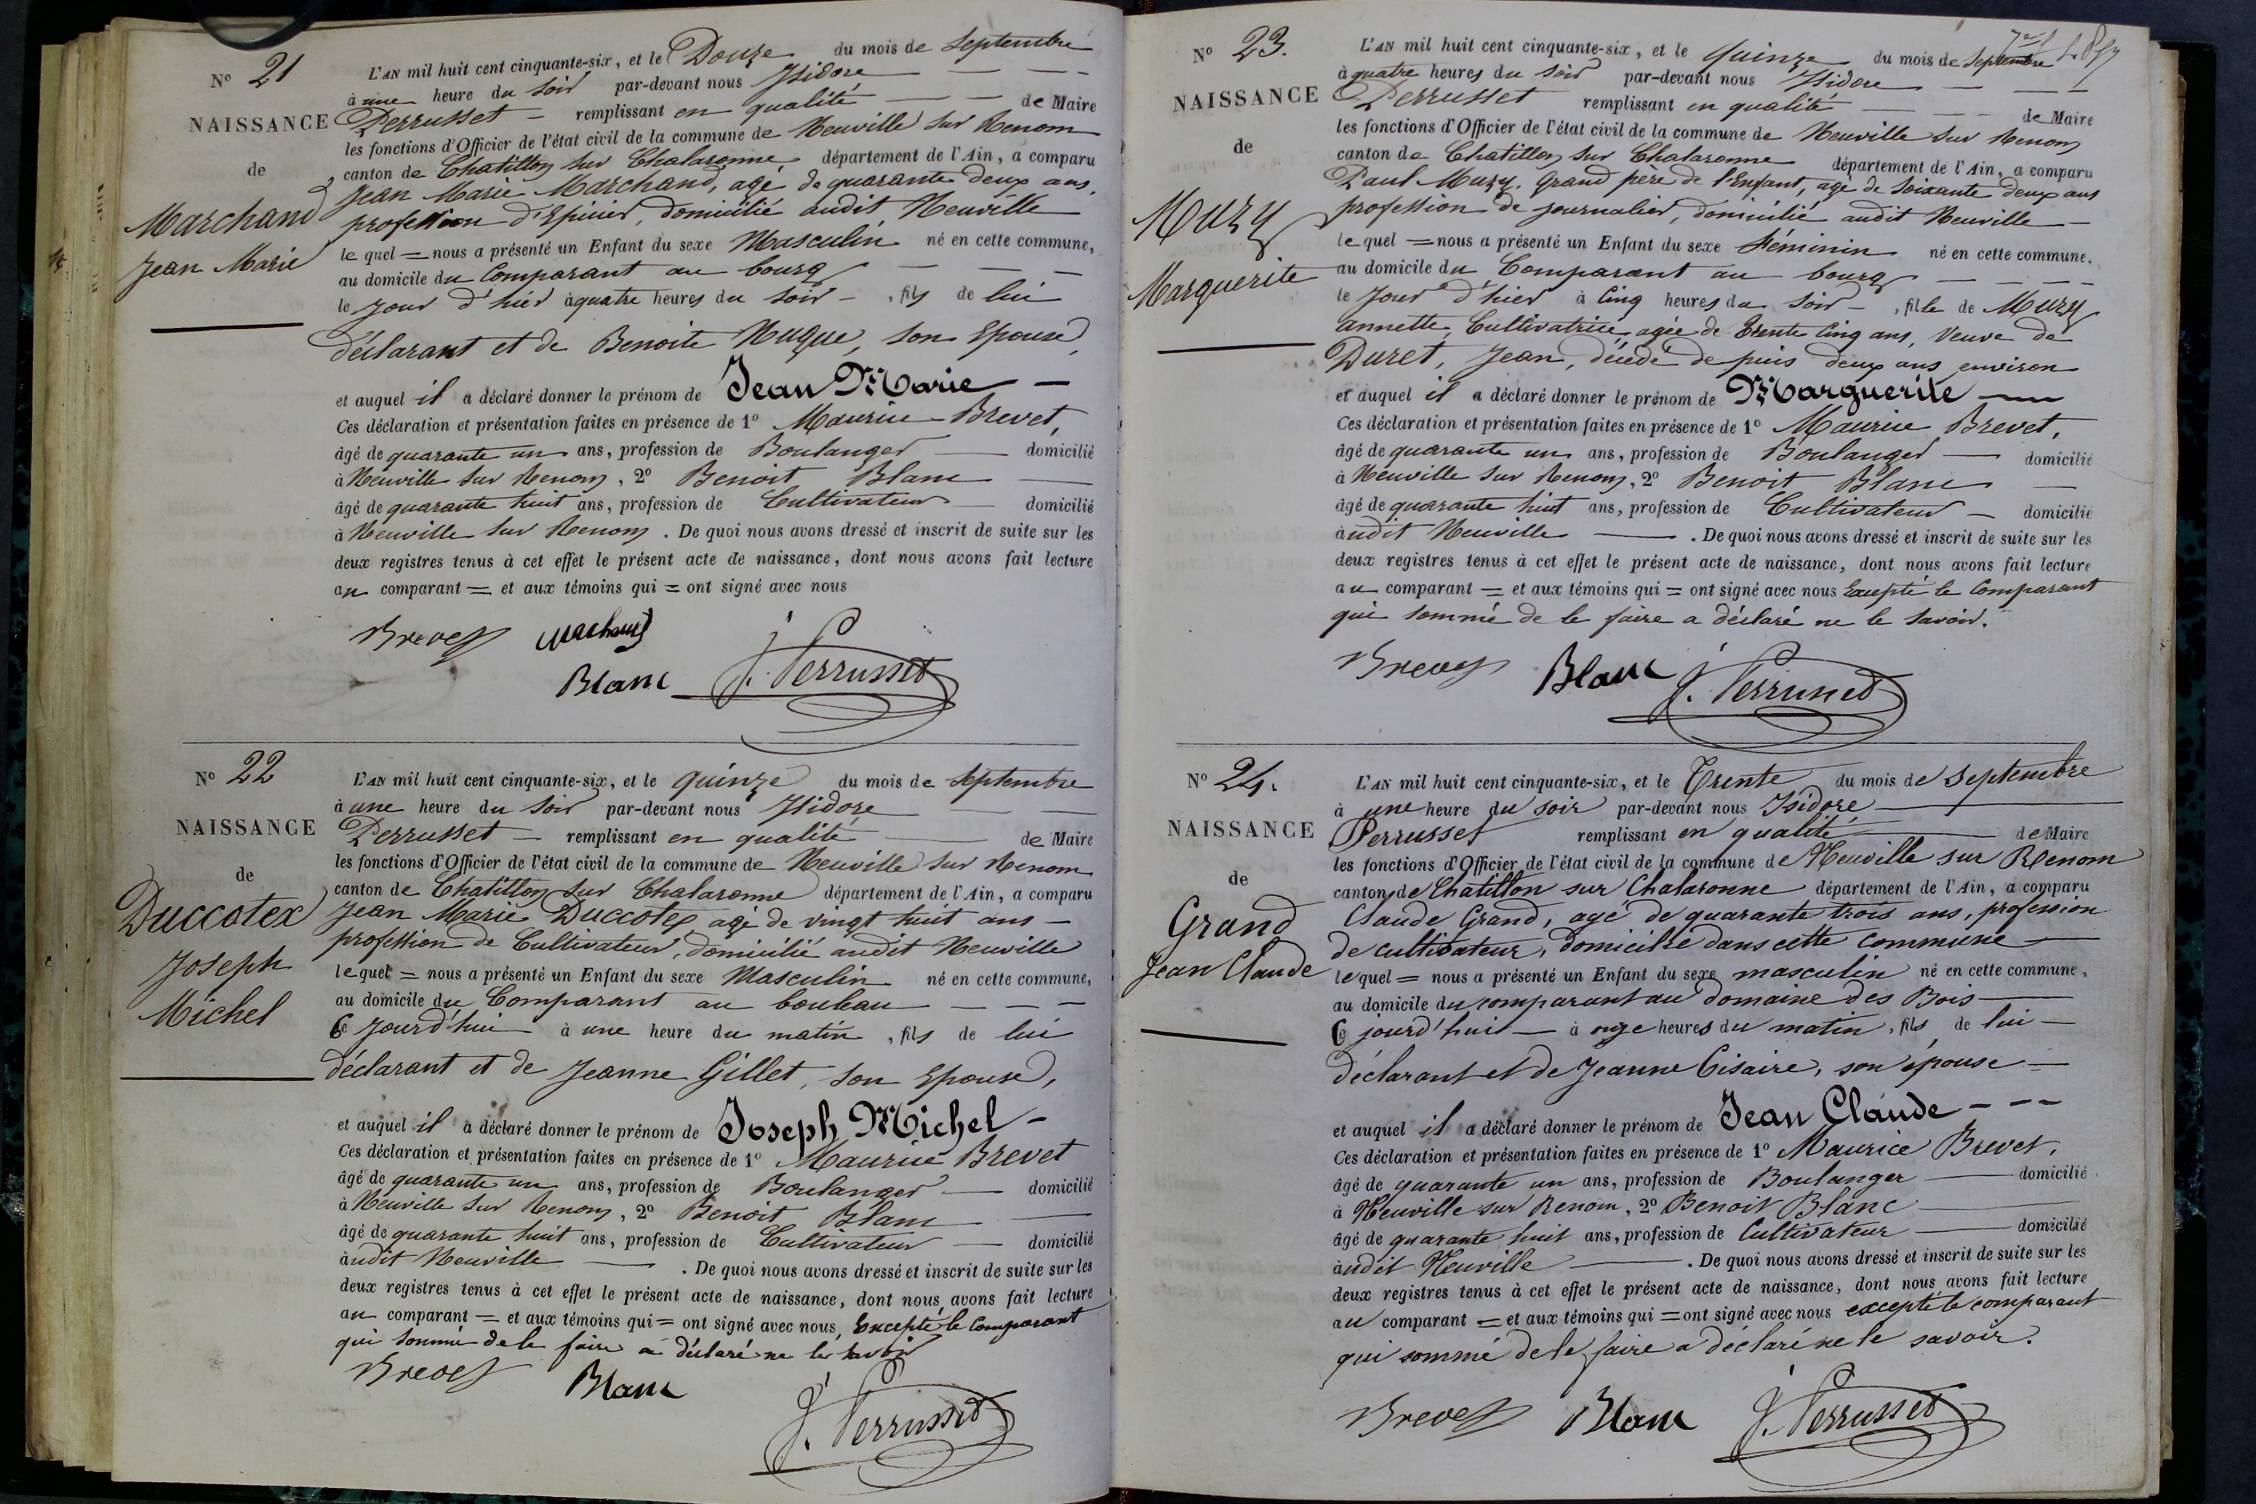 N° 21
NAISSANCE
de
Marchand
Jean Marie
L'AN mil huit cent cinquante-six, et le Douze du mois de Septembre
à une heure du soir par-devant nous Isidore
Perrusset remplissant en qualité de Maire
les fonctions d'Officier de l'état civil de la commune de Neuville sur Renom
canton de Chatillon sur Chalaronne département de l'Ain, a comparu
Jean Marie Marchand, agé de quarante deux ans,
profession d'Epicier, domicilié audit Neuville
le quel = nous a présenté un Enfant du sexe Masculin né en cette commune,
au domicile du Comparant au bourg
le jour d'hier à quatre heures du soir - , fils de lui
déclarant et de Benoite Nugue, son Epouse,
et auquel il a déclaré donner le prénom de Jean Marie
Ces déclaration et présentation faites en présence de 1° Maurice Brevet,
âgé de quarante un ans, profession de Boulanger domicilié
à Neuville sur Renom, 2° Benoit Blanc
âgé de quarante huit ans, profession de Cultivateur domicilié
à Neuville sur Renom. De quoi nous avons dressé et inscrit de suite sur les
deux registres tenus à cet effet le présent acte de naissance, dont nous avons fait lecture
au comparant = et aux témoins qui = ont signé avec nous
Brevet Marchand
Blanc J. Perrusset
N° 22
NAISSANCE
de
Duccotex
Joseph
Michel
L'AN mil huit cent cinquante-six, et le quinze du mois de Septembre
à une heure du soir par-devant nous Isidore
Perrusset remplissant en qualité de Maire
les fonctions d'Officier de l'état civil de la commune de Neuville sur Renom
canton de Chatillon sur Chalaronne département de l'Ain, a comparu
Jean Marie Duccotex agé de vingt huit ans -
profession de Cultivateur, domicilié audit Neuville
le quel = nous a présenté un Enfant du sexe Masculin né en cette commune,
au domicile du Comparant au bouleau
Ce jourd'hui à une heure du matin, fils de lui
déclarant et de Jeanne Gillet, son Epouse,
et auquel il a déclaré donner le prénom de Joseph Michel -
Ces déclaration et présentation faites en présence de 1° Maurice Brevet
âgé de quarante un ans, profession de Boulanger domicilié
à Neuville sur Renom, 2° Benoit Blanc
âgé de quarante huit ans, profession de Cultivateur domicilié
audit Neuville. De quoi nous avons dressé et inscrit de suite sur les
deux registres tenus à cet effet le présent acte de naissance, dont nous avons fait lecture
au comparant = et aux témoins qui = ont signé avec nous, Excepté le Comparant
qui sommé de le faire a déclaré ne le savoir
Brevet Blanc
J. Perrusset
N° 23.
NAISSANCE
de
Muzy
Marguerite
L'AN mil huit cent cinquante-six, et le quinze du mois de Septembre
à quatre heures du soir par-devant nous Isidore
Perrusset remplissant en qualité de Maire
les fonctions d'Officier de l'état civil de la commune de Neuville sur Renom
canton de Chatillon sur Chalaronne département de l'Ain, a comparu
Paul Muzy, Grand père de l'Enfant, agé de soixante deux ans
profession de journalier, domicilié audit Neuville -
le quel = nous a présenté un Enfant du sexe Féminin né en cette commune.
au domicile du Comparant au bourg
le Jour d'hier à Cinq heures du soir - , fille de Muzy
annette, Cultivatrice, agée de trente Cinq ans, Veuve de
Duret, Jean, décédé de puis deux ans environ
et auquel il a déclaré donner le prénom de Marguerite
Ces déclaration et présentation faites en présence de 1° Maurice Brevet,
âgé de quarante un ans, profession de Boulanger domicilié
à Neuville sur Renom, 2° Benoit Blanc
âgé de quarante huit ans, profession de Cultivateur domicilié
audit Neuville. De quoi nous avons dressé et inscrit de suite sur les
deux registres tenus à cet effet le présent acte de naissance, dont nous avons fait lecture
au comparant = et aux témoins qui = ont signé avec nous Excepté le Comparant
qui sommé de le faire a déclaré ne le savoir.
Brevet Blanc J. Perrusset
N° 24.
NAISSANCE
de
Grand
Jean Claude
L'AN mil huit cent cinquante-six, et le Trente du mois de septembre
à une heure du soir par-devant nous Isidore
Perrusset remplissant en qualité de Maire
les fonctions d'Officier de l'état civil de la commune de Neuville sur Renom
canton de Chatillon sur Chalaronne département de l'Ain, a comparu
Claude Grand, agé de quarante trois ans, profession
de cultivateur, domicilié dans cette commune
le quel = nous a présenté un Enfant du sexe masculin né en cette commune,
au domicile du comparant au domaine des Bois
Ce jourd'hui à onze heures du matin, fils de lui
déclarant et de Jeanne Cisaire, son épouse
et auquel il a déclaré donner le prénom de Jean Claude
Ces déclaration et présentation faites en présence de 1° Maurice Brevet,
âgé de quarante un ans, profession de Boulanger domicilié
à Neuville sur Renom, 2° Benoit Blanc
âgé de quarante huit ans, profession de Cultivateur domicilié
audit Neuville. De quoi nous avons dressé et inscrit de suite sur les
deux registres tenus à cet effet le présent acte de naissance, dont nous avons fait lecture
au comparant = et aux témoins qui = ont signé avec nous excepté le comparant
qui sommé de le faire a déclaré ne le savoir.
Brevet Blanc J. Perrusset